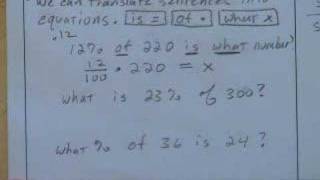 We can translate sentences into
equations. is = of • what x
.12
12% of 220 is what number?
12/100 • 220 = x
what is 23% of 300?
what % of 36 is 24?